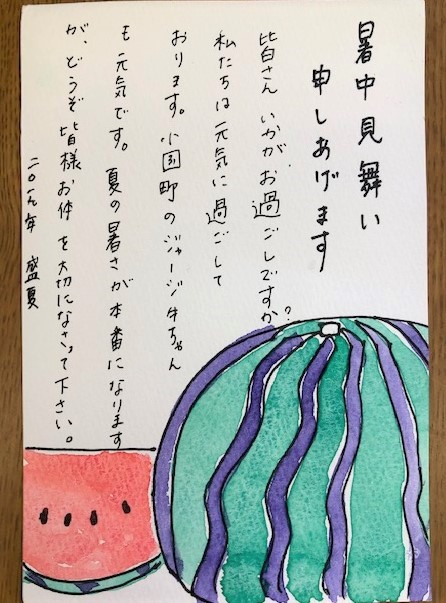 暑中見舞い
申しあげます
皆さん いかがお過ごしですか?
私たちは元気に過ごして
おります。小国町のジャージー牛ちゃん
も元気です。夏の暑さが本番になります
が、どうぞ皆様お体を大切になさって下さい。
二〇一九年 盛夏